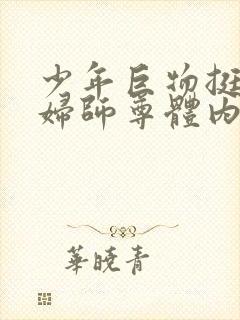 少年巨物挺
婦師尊體內
華曉青